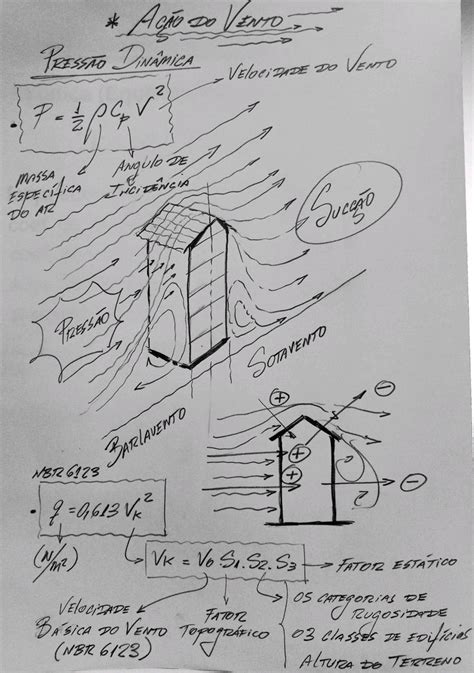 * AÇÃO DO VENTO
PRESSÃO DINÂMICA
P = 1/2 ρ Cp V²
VELOCIDADE DO VENTO
MASSA
ESPECÍFICA
DO AR
ANGULO DE
INCIDÊNCIA
SUCÇÃO
PRESSÃO
SOTAVENTO
BARLAVENTO
+
-
+
+
-
NBR 6123
q = 0,613 Vk²
(N/m²)
Vk = V0 S1. S2. S3
FATOR ESTÁTICO
VELOCIDADE
BÁSICA DO VENTO
(NBR 6123)
FATOR
TOPOGRÁFICO
05 CATEGORIAS DE
RUGOSIDADE
03 CLASSES DE EDIFÍCIOS
ALTURA DO TERRENO